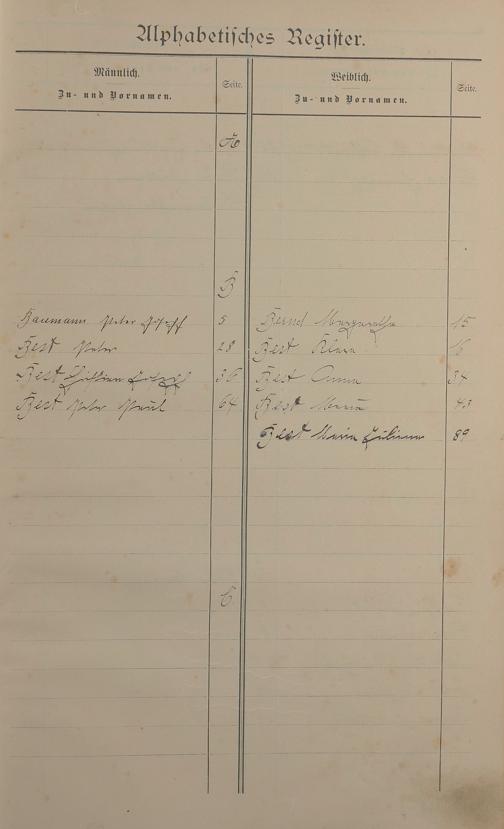 Alphabetisches Register.
Männlich.
Zu- und Vornamen.
Seite.
Weiblich.
Zu- und Vornamen.
Seite.
A
B
Baumann Peter Joseff 5
Bernd Margaretha 15
Best Peter 28
Best Klara 16
Best 36
Best Anna 34
Best Peter Paul 64
Best Maria 43
Best Maria Juliana 89
C